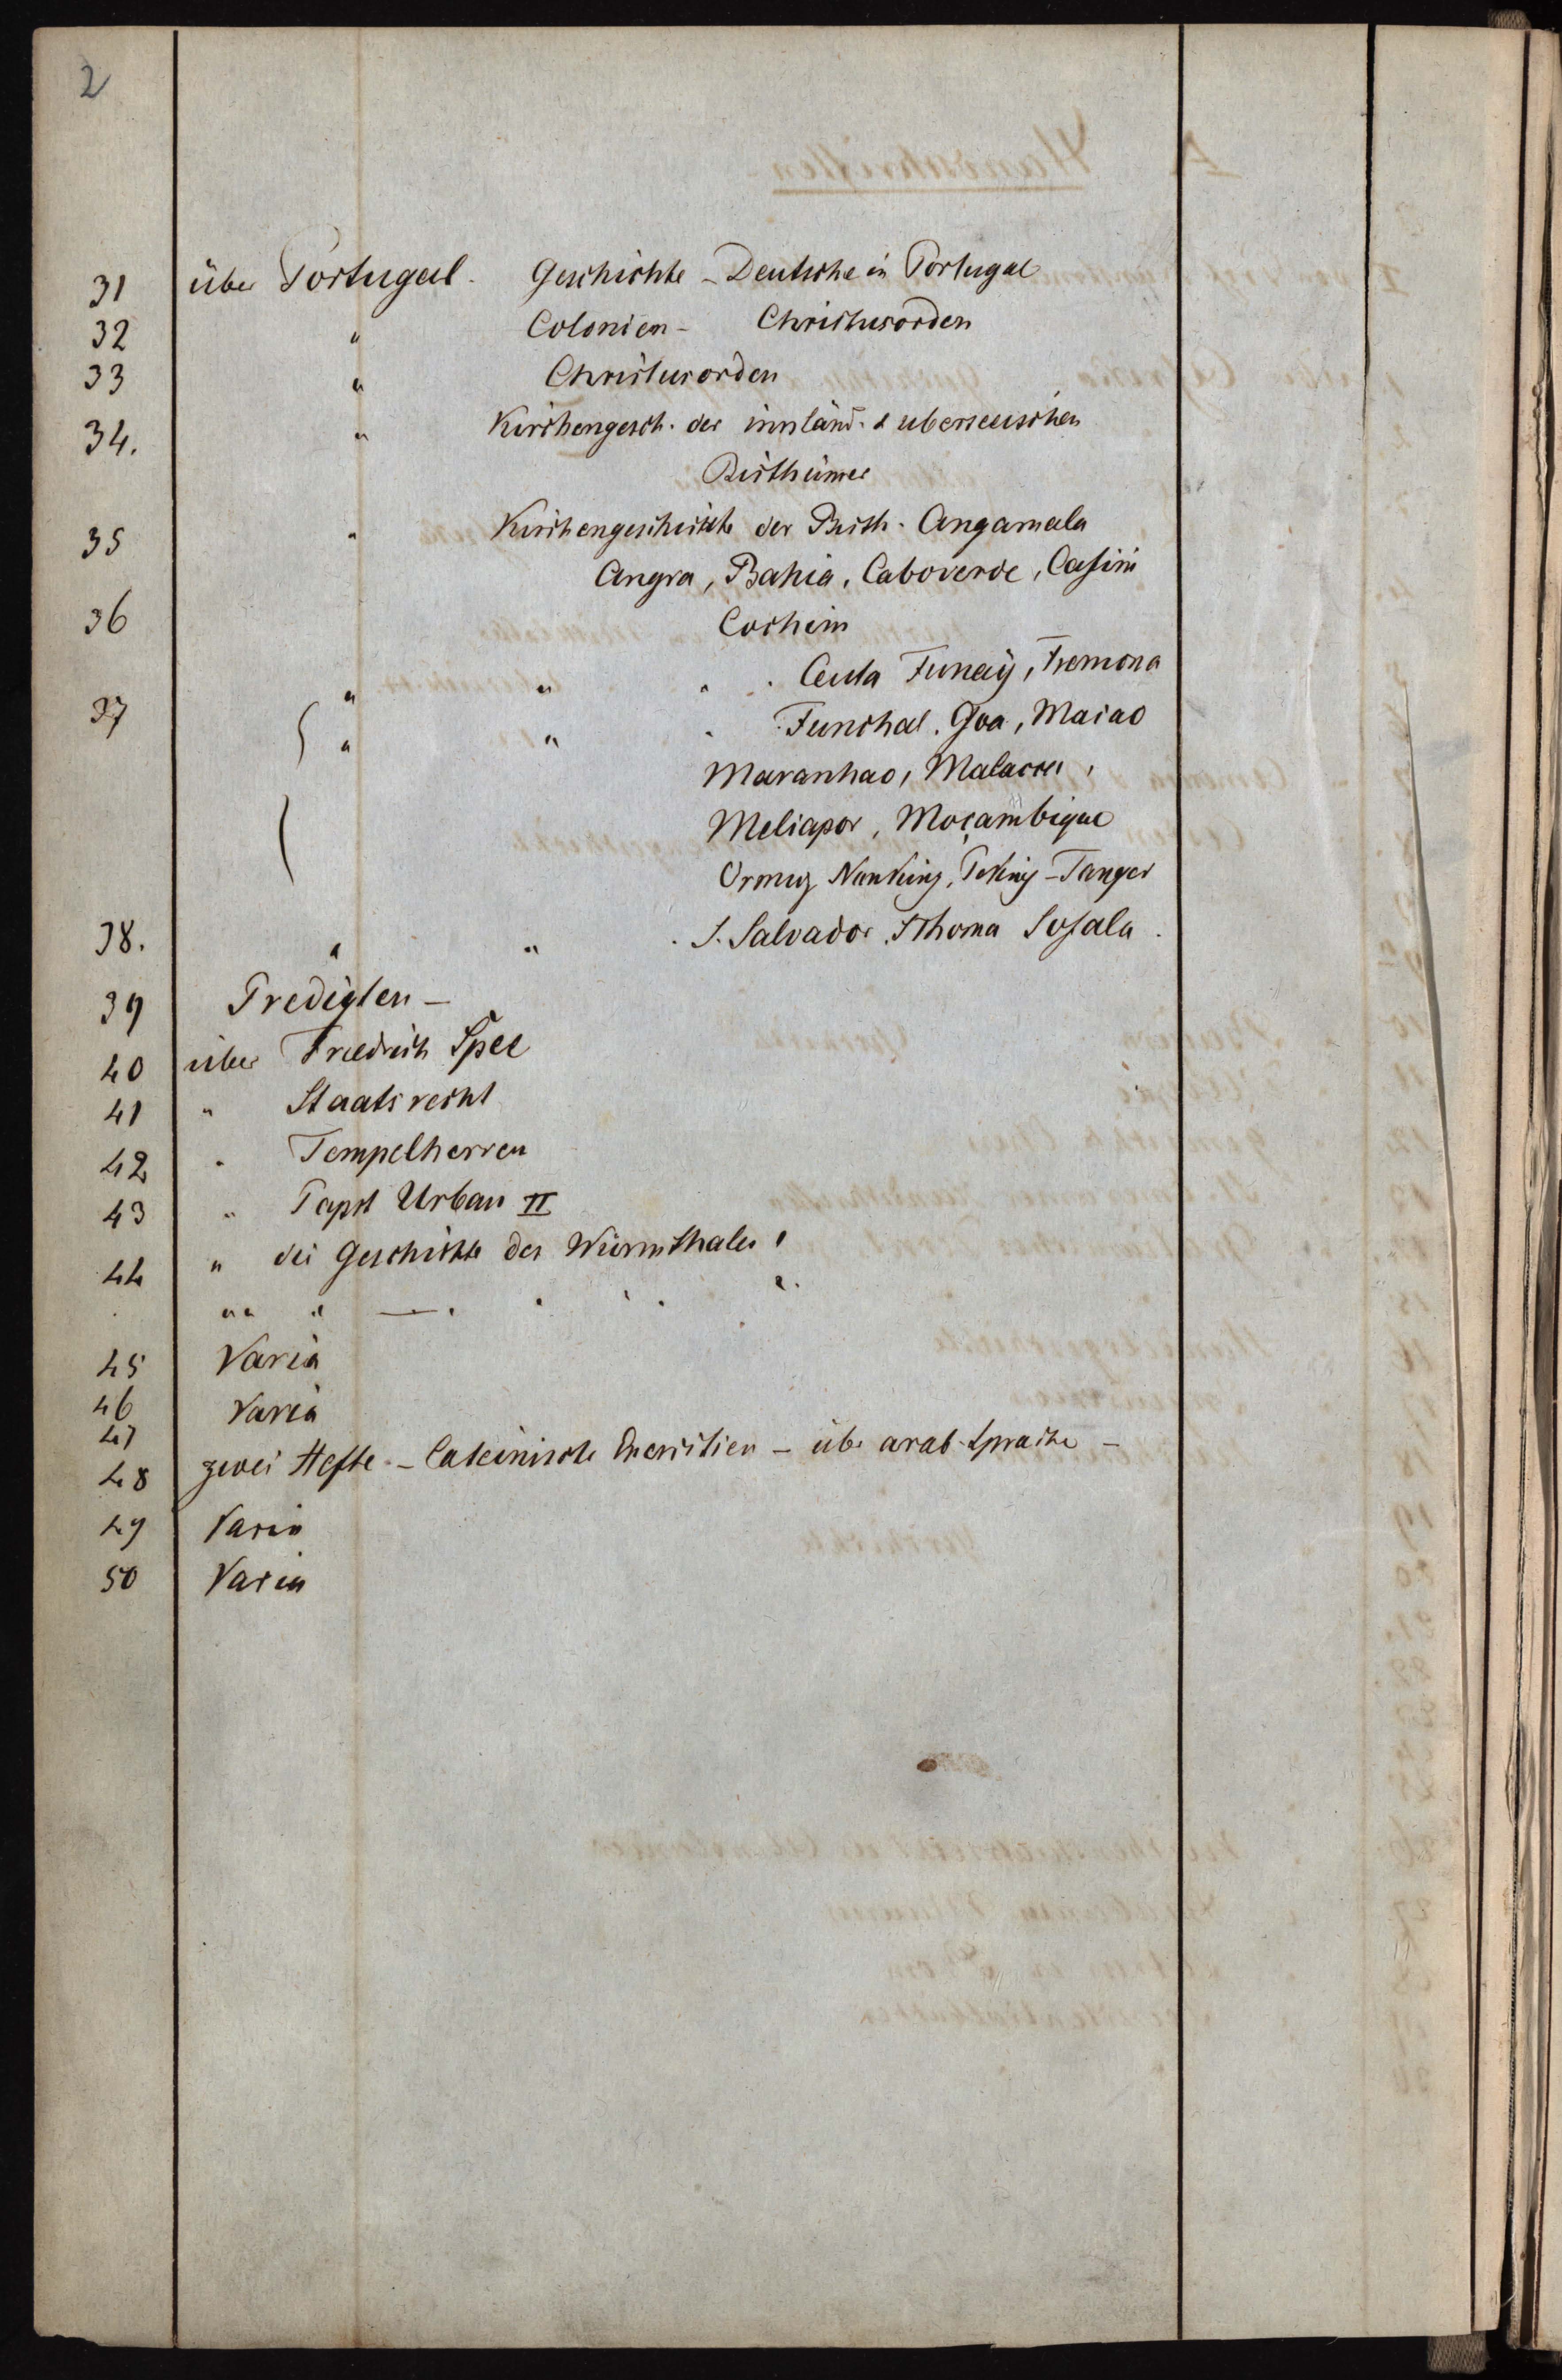 2
31 über Portugal. Geschichte – Deutsche in Portugal
32 " Colonien – Christusorden
33 " Christusorden
34. " Kirchengesch. der innländ. & uberseeischen
Bisthümer
35 " Kirchengeschichte der Bisth. Angamala
Angra, Bahia, Caboverde, Casini
36 Cochim
" " " . Ceuta Funay, Tremona
37 " " " Funchal. Goa, Macao
Maranhao, Malacca,
Meliapor, Moçambique
Ormuz Nanking, Peking – Tanger
38. " " . S. Salvador. S Thoma Sofala.
39 Predigten –
40 über Friedrich Spee
41 " Staatsrecht
42 " Tempelherren
43 " Papst Urban II
44 " die Geschichte des Würmthales 1
" " " — . . . . 2.
45 Varia
46 Varia
47
48 zwei Hefte. – Lateinische Exercitien – üb. arab. Sprache –
49 Varia
50 Varia